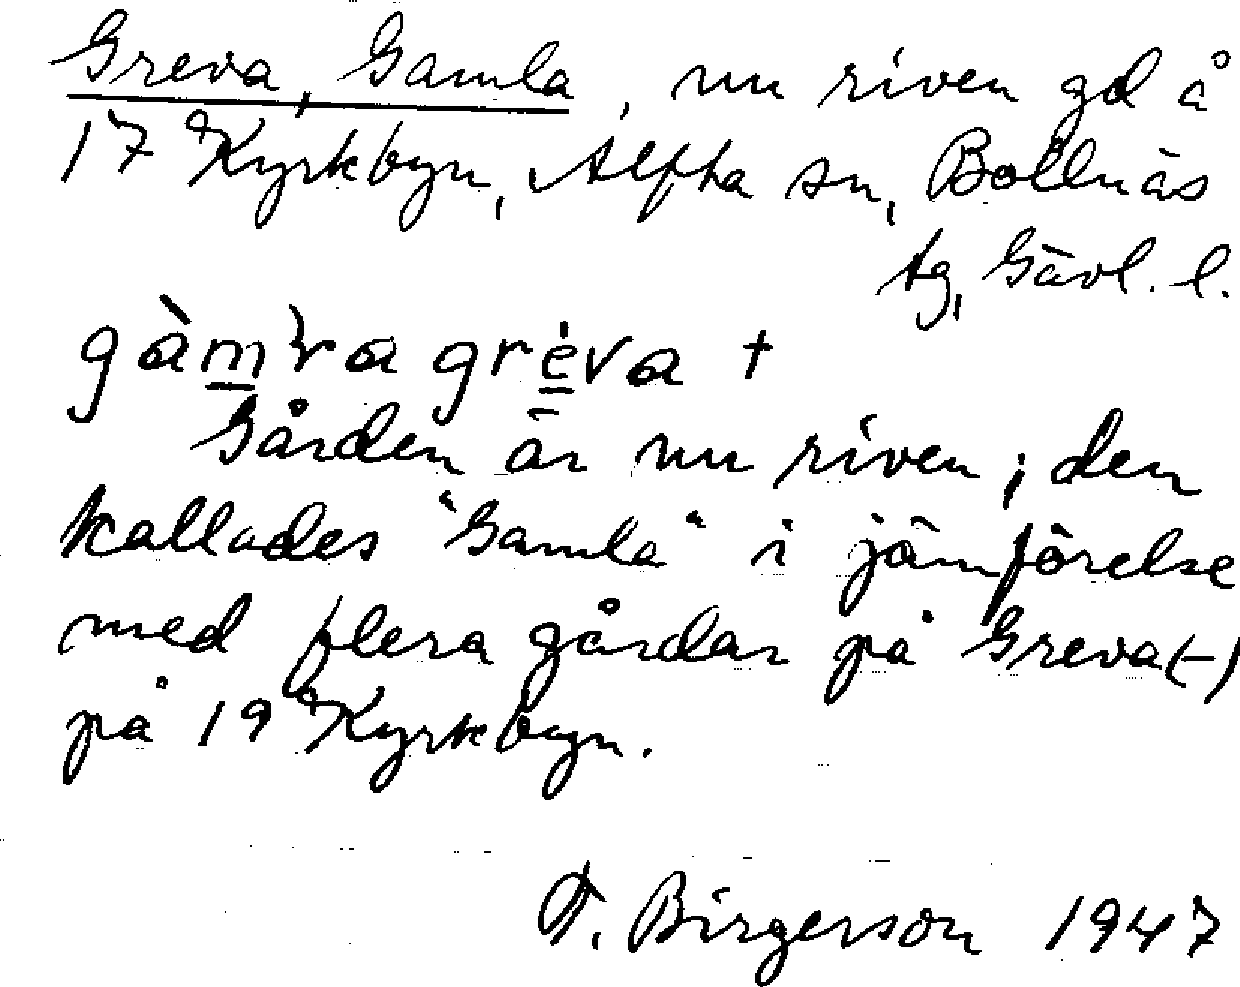 Greva, Gamla, nu riven gd å
17 Kyrkbyn, Alfta sn, Bollnäs
tg, Gävl. l.
gàm̲ra gre̲va †
Gården är nu riven; den
kallades "Gamla" i jämförelse
med flera gårdar på Greva(-)
på 19 Kyrkbyn.
F. Birgerson 1947